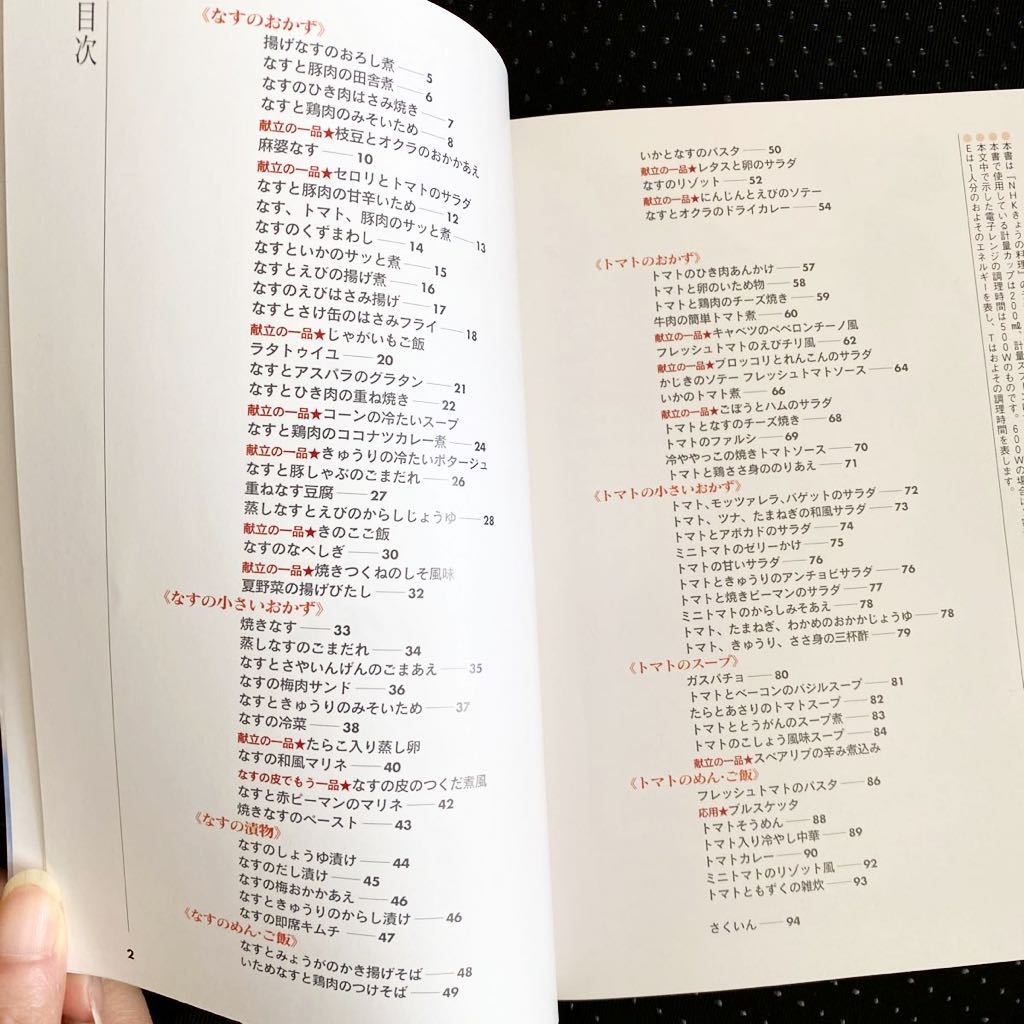 目次
《なすのおかず》
揚げなすのおろし煮——5
なすと豚肉の田舎煮——6
なすのひき肉はさみ焼き——7
なすと鶏肉のみそいため——8
献立の一品★枝豆とオクラのおかかあえ
麻婆なす——10
献立の一品★セロリとトマトのサラダ
なすと豚肉の甘辛いため——12
なす、トマト、豚肉のサッと煮——13
なすのくずまわし——14
なすといかのサッと煮——15
なすとえびの揚げ煮——16
なすのえびはさみ揚げ——17
なすとさけ缶のはさみフライ——18
献立の一品★じゃがいもご飯
ラタトゥイユ——20
なすとアスパラのグラタン——21
なすとひき肉の重ね焼き——22
献立の一品★コーンの冷たいスープ
なすと鶏肉のココナツカレー煮——24
献立の一品★きゅうりの冷たいポタージュ
なすと豚しゃぶのごまだれ——26
重ねなす豆腐——27
蒸しなすとえびのからしじょうゆ——28
献立の一品★きのこご飯
なすのなべしぎ——30
献立の一品★焼きつくねのしそ風味
夏野菜の揚げびたし——32
《なすの小さいおかず》
焼きなす——33
蒸しなすのごまだれ——34
なすとさやいんげんのごまあえ——35
なすの梅肉サンド——36
なすときゅうりのみそいため——37
なすの冷菜——38
献立の一品★たらこ入り蒸し卵
なすの和風マリネ——40
なすの皮でもう一品★なすの皮のつくだ煮風
なすと赤ピーマンのマリネ——42
焼きなすのペースト——43
《なすの漬物》
なすのしょうゆ漬け——44
なすのだし漬け——45
なすの梅おかかあえ——46
なすときゅうりのからし漬け——46
なすの即席キムチ——47
《なすのめん・ご飯》
なすとみょうがのかき揚げそば——48
いためなすと鶏肉のつけそば——49
2
いかとなすのパスタ——50
献立の一品★レタスと卵のサラダ
なすのリゾット——52
献立の一品★にんじんとえびのソテー
なすとオクラのドライカレー——54
《トマトのおかず》
トマトのひき肉あんかけ——57
トマトと卵のいため物——58
トマトと鶏肉のチーズ焼き——59
牛肉の簡単トマト煮——60
献立の一品★キャベツのペペロンチーノ風
フレッシュトマトのえびチリ風——62
献立の一品★ブロッコリとれんこんのサラダ
かじきのソテー フレッシュトマトソース——64
いかのトマト煮——66
献立の一品★ごぼうとハムのサラダ
トマトとなすのチーズ焼き——68
トマトのファルシ——69
冷ややっこの焼きトマトソース——70
トマトと鶏ささ身ののりあえ——71
《トマトの小さいおかず》
トマト、モッツァレラ、バゲットのサラダ——72
トマト、ツナ、たまねぎの和風サラダ——73
トマトとアボカドのサラダ——74
ミニトマトのゼリーかけ——75
トマトの甘いサラダ——76
トマトときゅうりのアンチョビサラダ——76
トマトと焼きピーマンのサラダ——77
ミニトマトのからしみそあえ——78
トマト、たまねぎ、わかめのおかかじょうゆ——78
トマト、きゅうり、ささ身の三杯酢——79
《トマトのスープ》
ガスパチョ——80
トマトとベーコンのバジルスープ——81
たらとあさりのトマトスープ——82
トマトととうがんのスープ煮——83
トマトのこしょう風味スープ——84
献立の一品★スペアリブの辛み煮込み
《トマトのめん・ご飯》
フレッシュトマトのパスタ——86
応用★ブルスケッタ
トマトそうめん——88
トマト入り冷やし中華——89
トマトカレー——90
ミニトマトのリゾット風——92
トマトともずくの雑炊——93
さくいん——94
●本書は「NHKきょうの料理」の
●本書で使用している計量カップは200㎖、計量スプ
●本文中で示した電子レンジの調理時間は500Wのものです。600Wの場合は
●Eは1人分のおよそのエネルギーを表し、Tはおよその調理時間を表します。